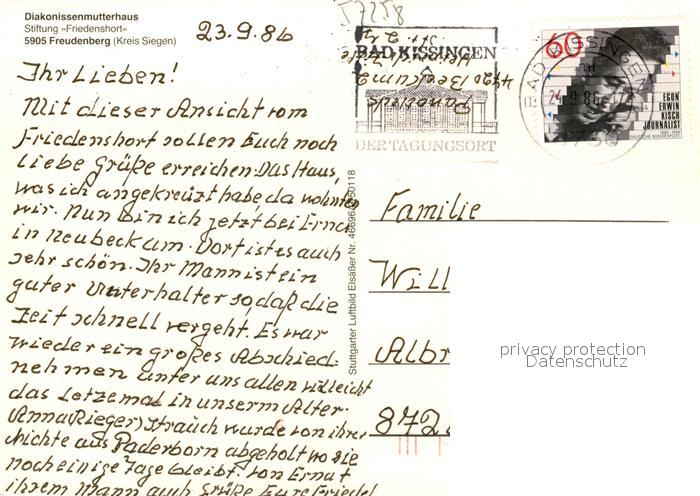 Diakonissenmutterhaus
Stiftung »Friedenshort«
5905 Freudenberg (Kreis Siegen)
23.9.86
Ihr Lieben!
Mit dieser Ansicht vom
Friedenshort sollen Euch noch
liebe Grüße erreichen. Das Haus,
was ich angekreuzt habe, da wohnten
wir. Nun bin ich jetzt bei Erna
in Neubeckum. Dort ist es auch
sehr schön. Ihr Mann ist ein
guter Unterhalter so, daß die
Zeit schnell vergeht. Es war
wieder ein großes Abschied-
nehmen unter uns allen vielleicht
das Letzemal in unserm Alter.
Anna (Rieger) Strauch wurde von ihrer
Nichte aus Paderborn abgeholt wo sie
noch einige Tage bleibt. Von Erna u
ihrem Mann auch Grüße Eure Friedel
Stuttgarter Luftbild Elsäßer Nr.
57258
BAD KISSINGEN
DER TAGUNGSORT
4720 Beckum 2
BAD KISSINGEN
24.-9.86
60
EGON
ERWIN
KISCH
JOURNALIST
1885-1948
DEUTSCHE BUNDESPOST
Familie
Will
Albr
872
privacy protection
Datenschutz